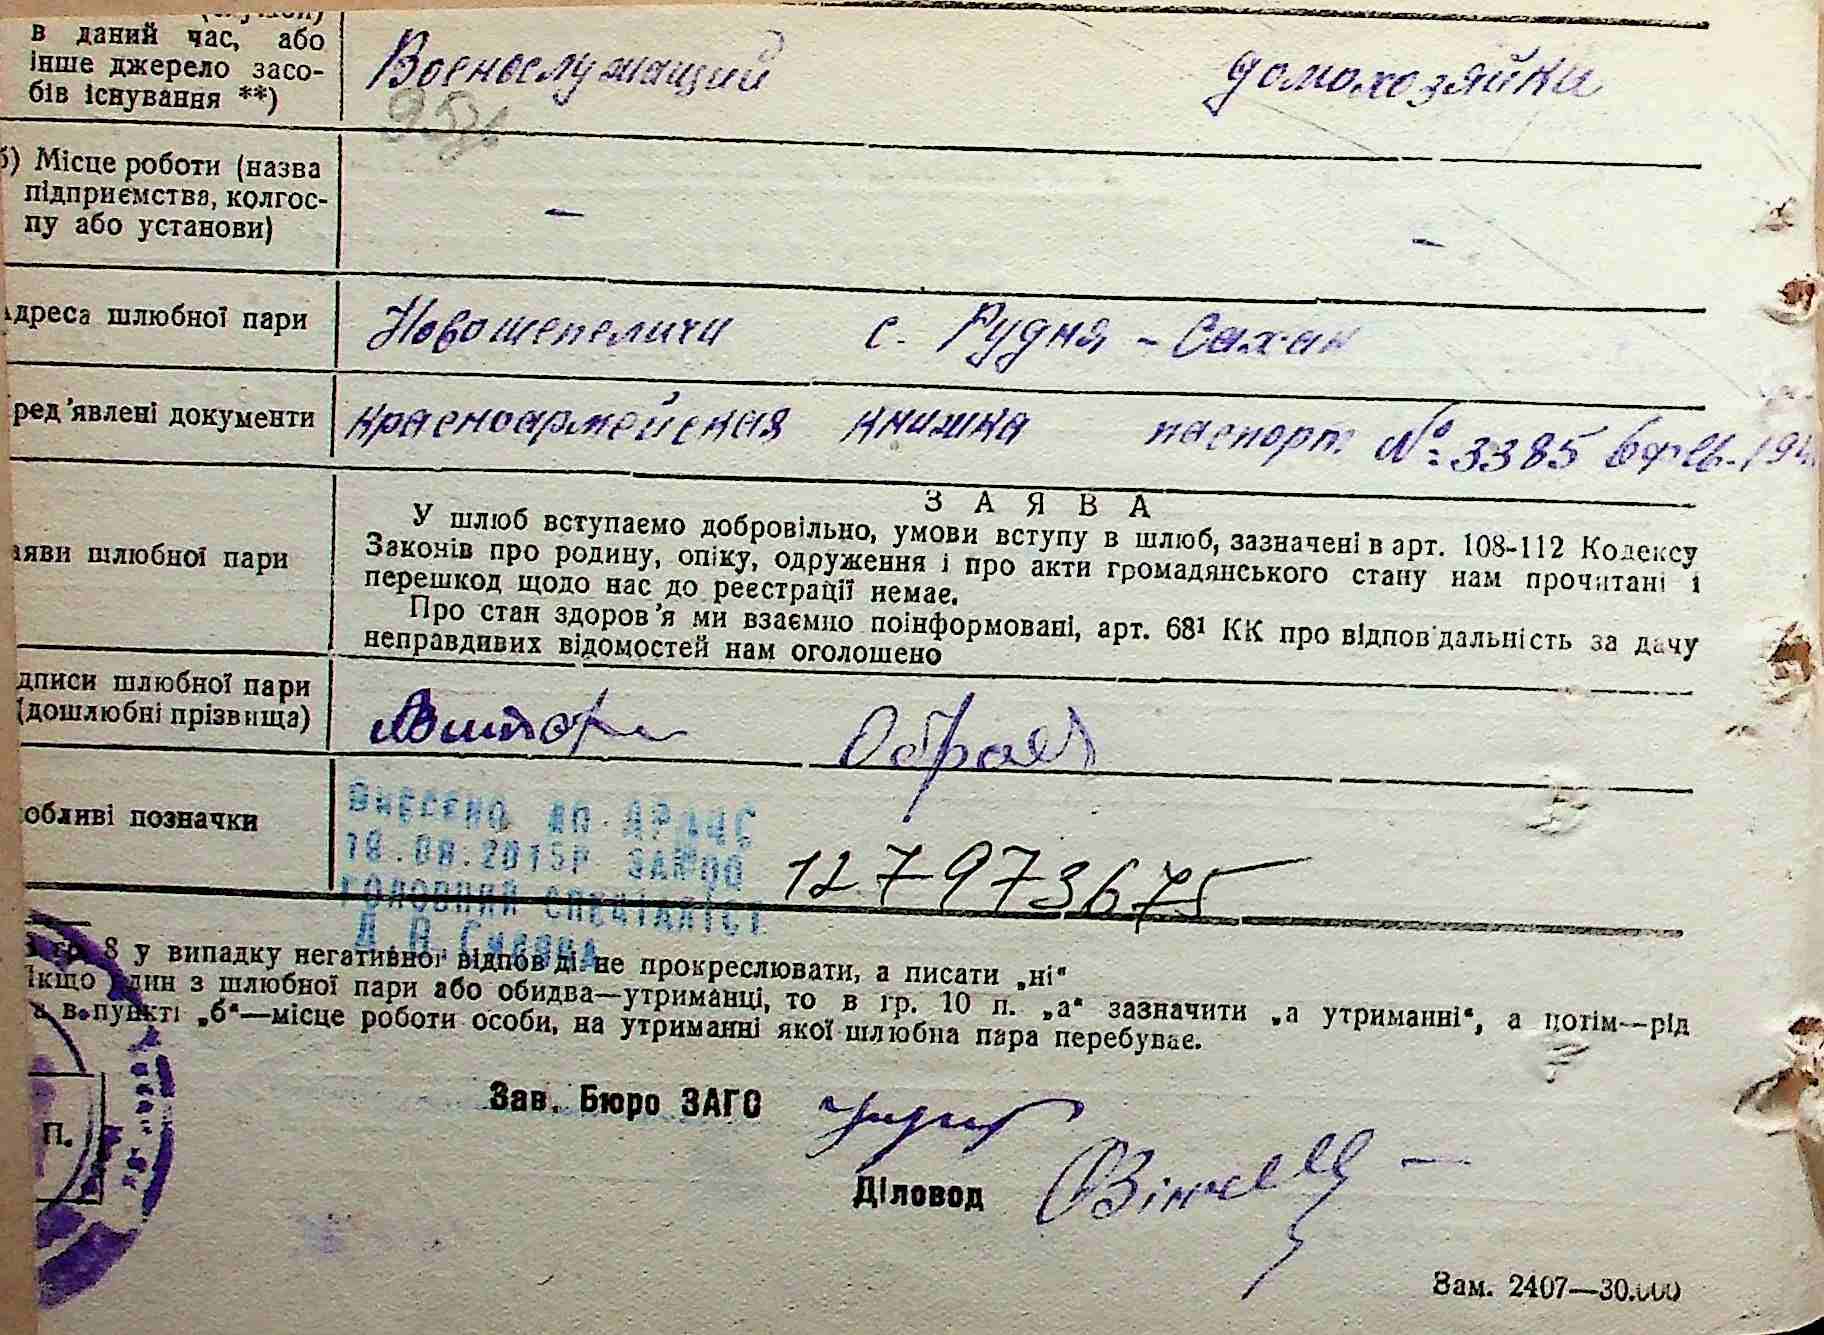 в даний час, або
інше джерело засо-
бів існування **)
Военнослужащий домохозяйка
б) Місце роботи (назва
підприємства, колгос-
пу або установи)
— —
Адреса шлюбної пари
Новошепеличи с. Рудня - Сахан
ред'явлені документи
красноармейская книжка паспорт № 3385
З А Я В А
У шлюб вступаємо добровільно, умови вступу в шлюб, зазначені в арт. 108-112 Кодексу
Законів про родину, опіку, одруження і про акти громадянського стану нам прочитані і
перешкод щодо нас до реєстрації немає.
Про стан здоров'я ми взаємно поінформовані, арт. 68¹ КК про відповідальність за дачу
неправдивих відомостей нам оголошено
аяви шлюбної пари
дписи шлюбної пари
(дошлюбні прізвища)
обливі позначки
ВНЕСЕНО ДО ДРАЦС
18.08.2015Р
ГОЛОВНИЙ СПЕЦІАЛІСТ
127973675
8 у випадку негативної відповіді не прокреслювати, а писати „ні“
Якщо один з шлюбної пари або обидва—утриманці, то в гр. 10 п. „а“ зазначити „а утриманні“, а потім—рід
а в пункті „б“—місце роботи особи, на утриманні якої шлюбна пара перебуває.
Зав. Бюро ЗАГС
П.
Діловод
Зам. 2407—30.000